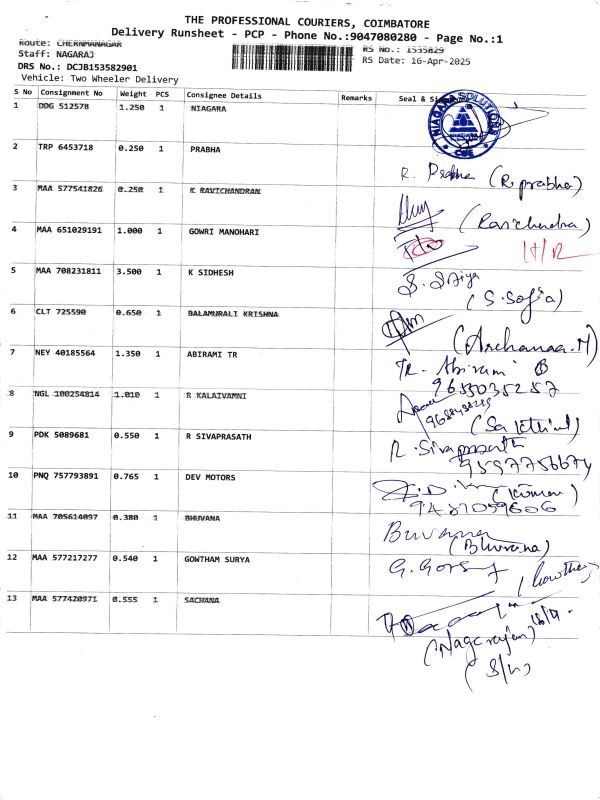 THE PROFESSIONAL COURIERS, COIMBATORE
Delivery Runsheet - PCP - Phone No.:9047080280 - Page No.:1
Route: CHERNMANAGAR
Staff: NAGARAJ
DRS No.: DCJB153582901
Vehicle: Two Wheeler Delivery
RS No.: 1535829
RS Date: 16-Apr-2025
S No Consignment No Weight PCS Consignee Details Remarks Seal &
1 DDG 512578 1.250 1 NIAGARA
NIAGARA SOLUTIONS
CBE
2 TRP 6453718 0.250 1 PRABHA
R. Prabha (R. prabha)
3 MAA 577541826 0.250 1 K RAVICHANDRAN
(Ravichandra)
4 MAA 651029191 1.000 1 GOWRI MANOHARI
5 MAA 708231811 3.500 1 K SIDHESH
(S. Sofia)
6 CLT 725590 0.650 1 BALAMURALI KRISHNA
(Archanaa.M)
7 NEY 40185564 1.350 1 ABIRAMI TR
TR. Abirami
9655035257
8 NGL 100254814 1.010 1 R KALAIVAMNI
9 PDK 5089681 0.550 1 R SIVAPRASATH
R. Sivaprasath
10 PNQ 757793891 0.765 1 DEV MOTORS
(Kumar)
9487059606
11 MAA 705614097 0.380 1 BHUVANA
Buvana
(Bhuvana)
12 MAA 577217277 0.540 1 GOWTHAM SURYA
13 MAA 577420971 0.555 1 SACHANA
(Nagarajan)
(S/W)